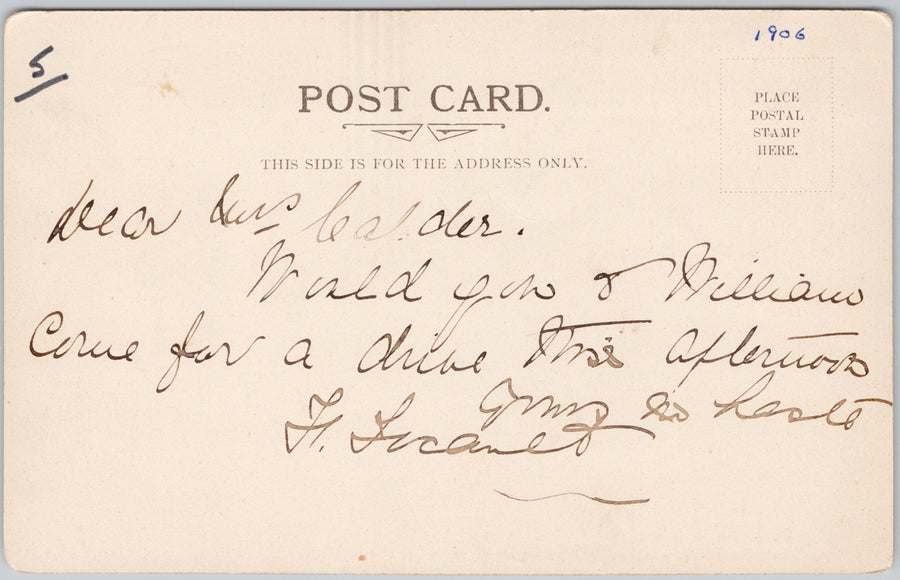 1906
5
POST CARD.
PLACE
POSTAL
STAMP
HERE.
THIS SIDE IS FOR THE ADDRESS ONLY.
Dear Mrs Calder.
Would you & William
Come for a drive this afternoon
Yours in haste